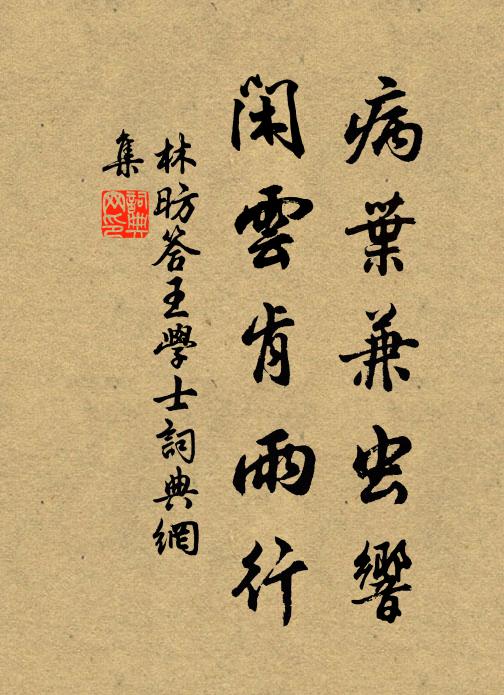 病葉兼虫響
閑雲肯雨行
林昉答王學士詞典網
集
詞典
网印